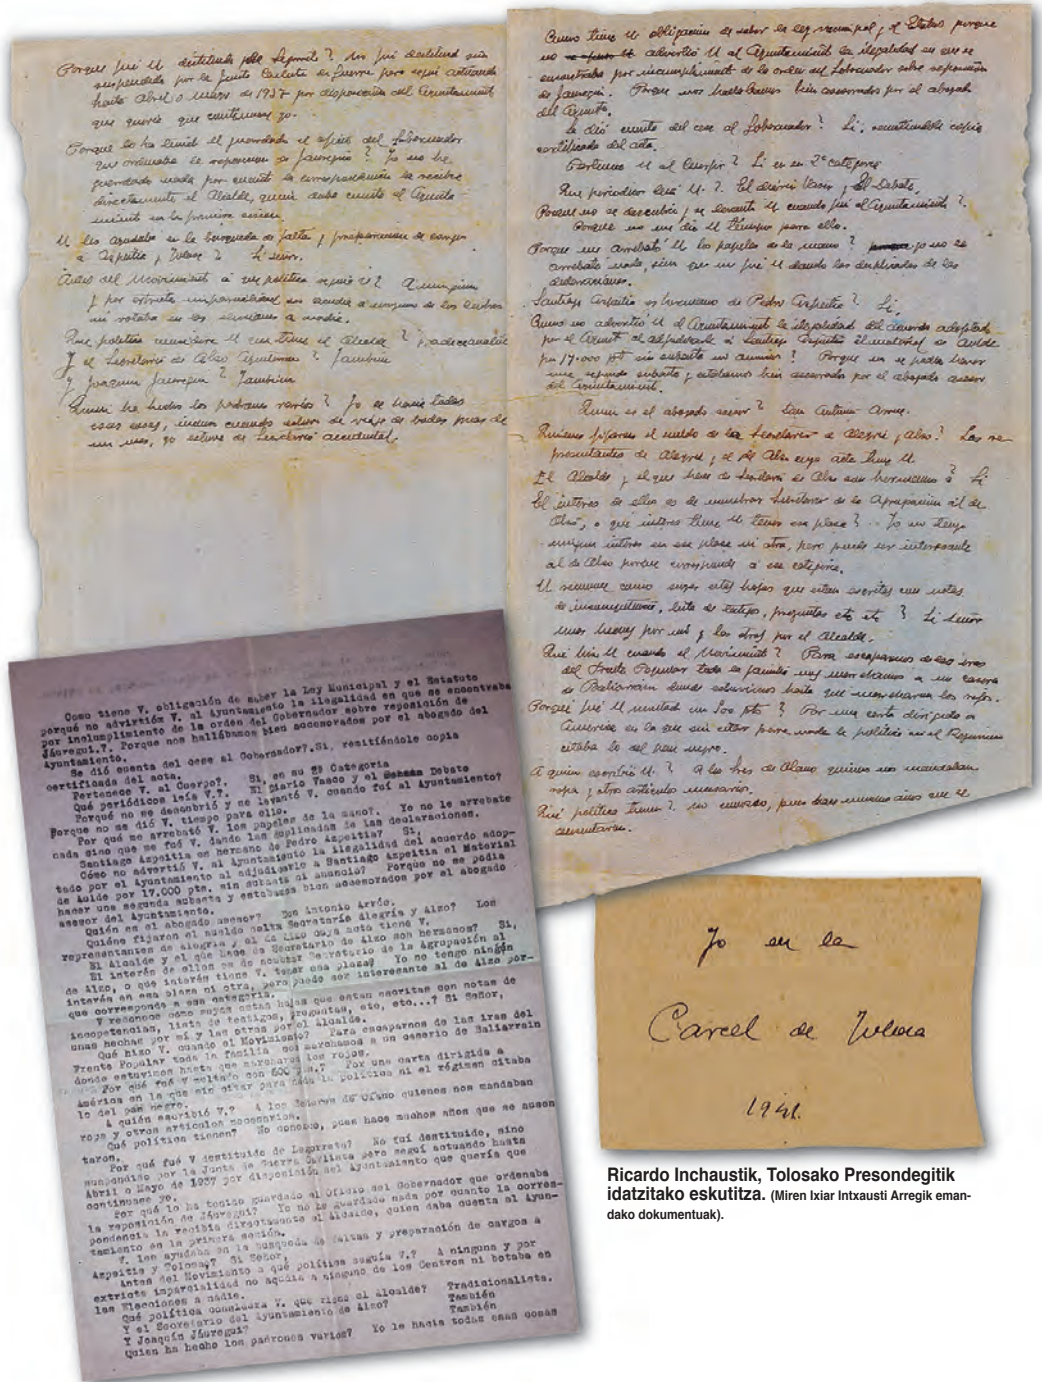 Porque fué U destituido de Legorreta? No fuí destituido sino
suspendido por la Junta Carlista de Guerra pero seguí actuando
hasta Abril o Mayo de 1937 por disposición del Ayuntamiento
que quería que continuase yo.
Porque lo ha tenido U guardado el oficio del Gobernador
que ordenaba la reposición de Jauregui? Yo no he
guardado nada por cuanto la correspondencia la recibía
directamente el Alcalde, quien daba cuenta al Ayunta-
miento en la primera sesión.
U les ayudaba en la búsqueda de faltas y preparación de cargos
a Azpeitia y Tolosa? Si señor.
Antes del Movimiento a que política seguía V? A ninguna
y por estricta imparcialidad no acudía a ninguno de los Centros
ni votaba en las elecciones a nadie.
Que política considera U que tiene el Alcalde? Tradicionalista
Y el Secretario de Alzo Ayuntamiento? También
Y Joaquin Jauregui? También
Quien ha hecho los padrones varios? Yo le hacía todas
esas cosas, incluso cuando estuvo de viaje de bodas mas de
un mes, yo estuve de Secretario accidental.
Como tiene U obligación de saber la ley municipal y el Estatuto porque
no advirtió U al Ayuntamiento la ilegalidad en que se
encontraba por incumplimiento de la orden del Gobernador sobre reposición
de Jauregui. Porque nos hallabamos bien asesorados por el abogado
del Ayunto.
Se dió cuenta del cese al Gobernador? Si, remitiendole copia
certificada del acta.
Pertenece U al Cuerpo? Si en su 2ª categoria
Que periodicos leía U.? El diario Vasco y El Debate.
Porque no se descubrió y se levantó U cuando fuí al Ayuntamiento?
Porque no me dió U tiempo para ello.
Porque me arrebató U los papeles de la mano? yo no le
arrebaté nada, sino que se fué U dando las duplicadas de las
declaraciones.
Santiago Azpeitia es hermano de Pedro Azpeitia? Si.
Como no advertió U al Ayuntamiento la ilegalidad del acuerdo adoptado
por el Ayunt. al adjudicarle a Santiago Azpeitia el material de Aulde
por 17.000 pts sin subasta ni anuncio? Porque no se podía hacer
una segunda subasta y estabamos bien asesorados por el abogado asesor
del Ayuntamiento.
Quien es el abogado asesor? Don Antonio Arrue.
Quienes fijaron el sueldo de la Secretaria de Alegria y Alzo? Los re-
presentantes de Alegria y el de Alzo cuya acta tiene U
El Alcalde y el que hace de Secretario de Alzo son hermanos? Si
El interes de ellos es de nombrar Secretario de la Agrupación al de
Alzo, o que interes tiene U tener esa plaza? Yo no tengo
ningun interés en esa plaza ni otra, pero puede ser interesante
al de Alzo porque corresponde á esa categoria.
U reconoce como suyas estas hojas que estan escritas con notas
de incompetencias, lista de testigos, preguntas etc etc? Si Señor
unas hechas por mi y las otras por el Alcalde.
Qué hizo U cuando el Movimiento? Para escaparnos de las iras
del Frente Popular toda la familia nos marchamos a un caserio
de Baliarrain donde estuvimos hasta que marcharan los rojos.
Porque fué U multado con 500 pts? Por una carta dirigida a
America en la que sin citar para nada la politica ni el Regimen
citaba lo del pan negro.
A quien escribió U.? A los Sres de Olano quienes nos mandaban
ropa y otros articulos necesarios.
Qué política tienen? No conozco, pues hace muchos años que se
ausentaron.
Como tiene V. obligación de saber la Ley Municipal y el Estatuto
porqué no advirtióm V. al Ayuntamiento la ilegalidad en que se encontraba
por incluplimiento de la orden del Gobernador sobre reposición de
Jáuregui.?. Porque nos hallábamos bien accesorados por el abogado del
Ayuntamiento.
Se dió cuenta del cese al Gobernador?.Si, remitiéndole copia
certificada del acta.
Pertenece V. al Cuerpo?. Si, en su 2ª Categoria
Qué periódicos leía V.?. El Diario Vasco y el Debate
Porqué no se descubrió y se levantó V. cuando fuí al Ayuntamiento?
Porque no me dió V. tiempo para ello.
Por qué me arrebató V. los papeles de la mano?. Yo no le arrebate
nada sino que se fué V. dando las duplicadas de las declaraciones.
Santiago Azpeitia es hermano de Pedro Azpeitia? Si,
Cómo no advertió V. al Ayuntamiento la ilegalidad del acuerdo adop-
tado por el Ayuntamiento al adjudicarle a Santiago Azpeitia el Material
de Aulde por 17.000 pts. sin subasta ni anuncio? Porque no se podía
hacer una segunda subasta y estabamos bien accesorados por el abogado
asesor del Ayuntamiento.
Quién es el abogado asesor? Don Antonio Arrúe.
Quiéne fijaron el sueldo Secretaría Alegría y Alzo? Los
representantes de Alegria y el de Alzo cuya acta tiene V.
El Alcalde y el que hace de Secretario de Alzo son hermanos? Si,
El interés de ellos es de nombrar Secretario de la Agrupación al
de Alzo, o que interés tiene V. tener esa plaza? Yo no tengo ningún
interés en esa plaza ni otra, pero puede ser interesante al de Alzo por-
que corresponde a esa categoría.
V reconoce como suyas estas hojas que estan escritas con notas de
incopetencias, lista de testigos, preguntas, etc, etc...? Si Señor,
unas hechas por mí y las otras por el Alcalde.
Qué hizo V. cuando el Movimiento? Para escaparnos de las iras del
Frente Popular toda la familia nos marchamos a un caserio de Baliarrain
donde estuvimos hasta que marcharon los rojos.
Por qué fué V multado con 500 pts.? Por una carta dirigida a
América en la que sin citar para nada la política ni el régimen citaba
lo del pan negro.
A quién escribió V.? A los Señores de Olano quienes nos mandaban
ropa y otros artículos necesarios.
Qué política tienen? No conozco, pues hace muchos años que se ausen
taron.
Por qué fué V destituido de Legorreta? No fuí destituido, sino
suspendido por la Junta de Guerra Carlista pero seguí actuando hasta
Abril o Mayo de 1937 por disposición del Ayuntamiento que quería que
continuase yo.
Por qué lo ha tenido guardado el Oficio del Gobernador que ordenaba
la reposición de Jáuregui? Yo no he guardado nada por quanto la corres-
pondencia la recibía directamente el Alcalde, quien daba cuenta al Ayun-
tamiento en la primera sesión.
V. les ayudaba en la busqueda de faltas y preparación de cargos a
Azpeitia y Tolosa? Si Señor,
Antes del Movimiento a qué política seguía V.? A ninguna y por
extricta imparcialidad no aqudía a ninguno de los Centros ni botaba en
las Elecciones a nadie.
Qué política considera V. que rige al Alcalde? Tradicionalista.
Y el Secretario del Ayuntamiento de Alzo? También
Y Joaquín Jáuregui? También
Quien ha hecho los padrones varios? Yo le hacía todas esas cosas
Yo en la
Carcel de Tolosa
1941.
Ricardo Inchaustik, Tolosako Presondegitik
idatzitako eskutitza. (Miren Ixiar Intxausti Arregik eman-
dako dokumentuak).